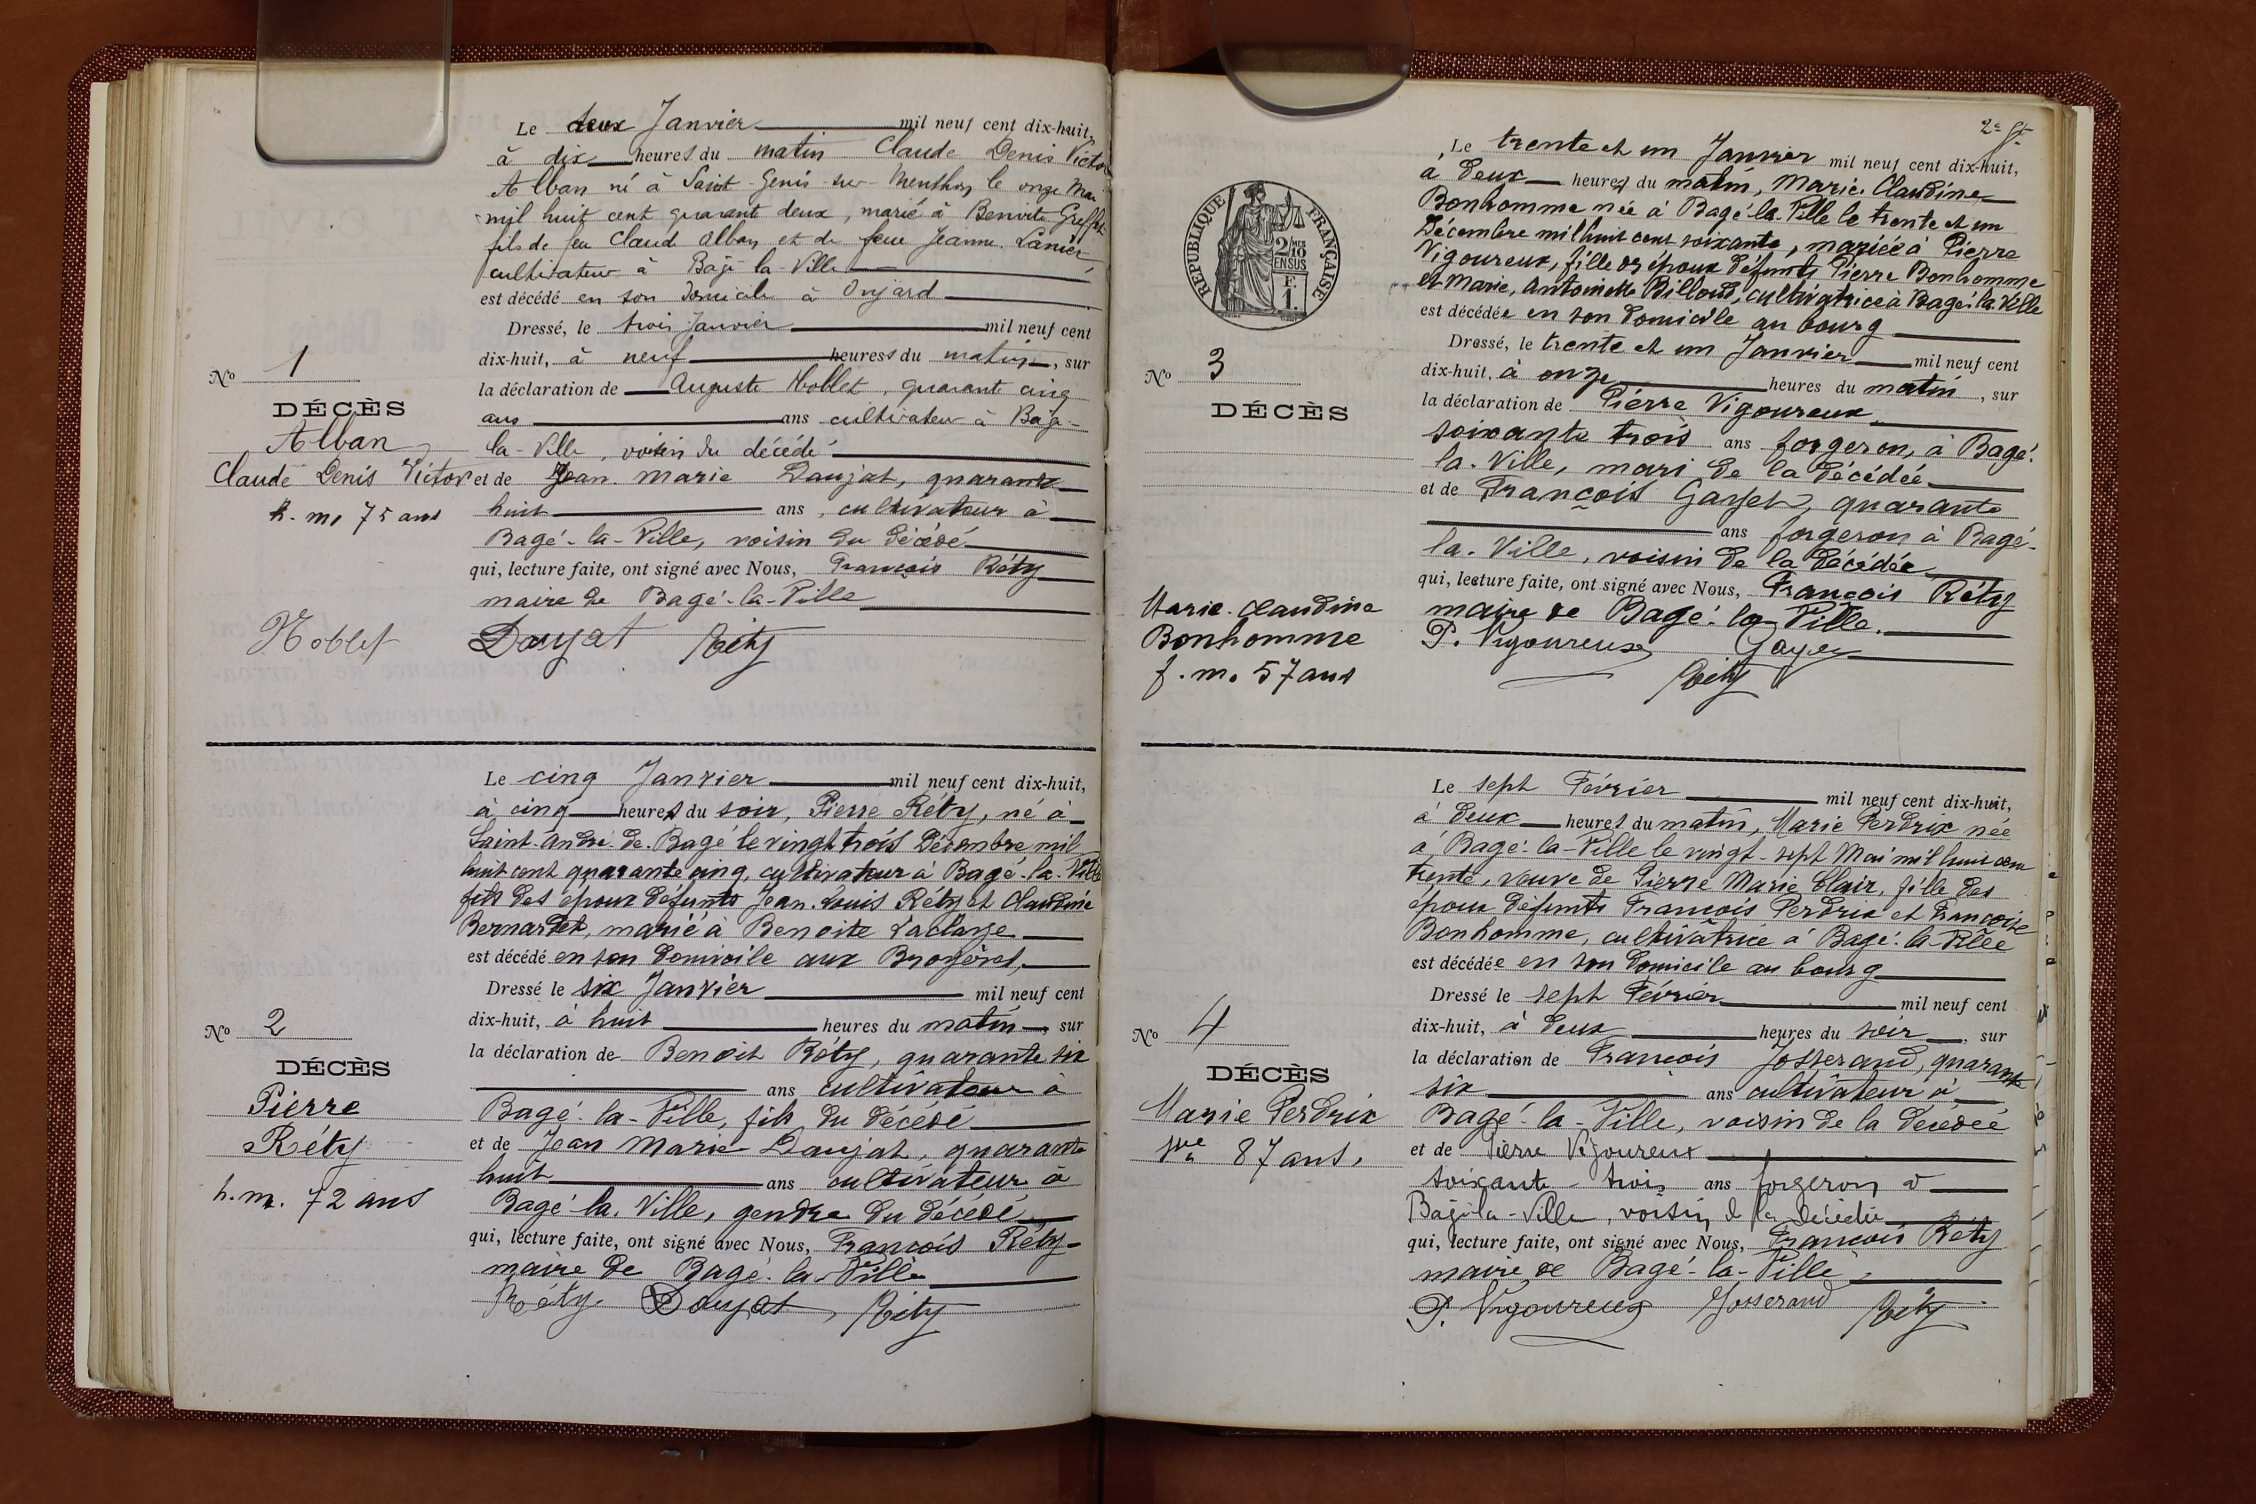 Le deux Janvier mil neuf cent dix-huit,
à dix heures du matin Claude Denis Victor
Alban né à Saint-Genis-sur-Menthon le onze Mai
mil huit cent quarante deux, marié à Benoite Greffet
fils de feu Claude Alban et de feue Jeanne Lanier,
cultivateur à Bagé-la-Ville
est décédé en son domicile à Onjard
Dressé, le trois Janvier mil neuf cent
dix-huit, à neuf heures du matin, sur
la déclaration de Auguste Noblet, quarante cinq
ans ans cultivateur à Bagé-
la-Ville, voisin du décédé
et de Jean Marie Daujat, quarante
huit ans, cultivateur à
Bagé-la-Ville, voisin du décédé
qui, lecture faite, ont signé avec Nous, François Réty
maire de Bagé-la-Ville
Noblet Daujat Réty
No 1
DÉCÈS
Alban
Claude Denis Victor
h. m. 75 ans
Le cinq Janvier mil neuf cent dix-huit,
à cinq heures du soir, Pierre Réty, né à
Saint-André-de-Bagé le vingt trois Décembre mil
huit cent quarante cinq, cultivateur à Bagé-la-Ville
fils des époux défunts Jean-Louis Réty et Claudine
Bernardet, marié à Benoite
est décédé en son domicile aux Broyères,
Dressé le six Janvier mil neuf cent
dix-huit, à huit heures du matin, sur
la déclaration de Benoit Réty, quarante six
ans cultivateur à
Bagé-la-Ville, fils du décédé
et de Jean Marie Daujat, quarante
huit ans cultivateur à
Bagé-la-Ville, gendre du décédé
qui, lecture faite, ont signé avec Nous, François Réty
maire de Bagé-la-Ville
Réty Daujat Réty
No 2
DÉCÈS
Pierre
Réty
h. m. 72 ans
2e ft
Le trente et un Janvier mil neuf cent dix-huit,
à deux heures du matin, Marie Claudine
Bonhomme née à Bagé-la-Ville le trente et un
Décembre mil huit cent soixante, mariée à Pierre
Vigoureux, fille des époux défunts Pierre Bonhomme
et Marie, Antoinette Billoud, cultivatrice à Bagé-la-Ville
est décédée en son domicile au bourg
Dressé, le trente et un Janvier mil neuf cent
dix-huit, à onze heures du matin, sur
la déclaration de Pierre Vigoureux
soixante trois ans forgeron, à Bagé-
la-Ville, mari de la décédée
et de François Gayet, quarante
ans forgeron à Bagé-
la-Ville, voisin de la décédée
qui, lecture faite, ont signé avec Nous, François Réty
maire de Bagé-la-Ville.
P. Vigoureux Gayet
Réty
RÉPUBLIQUE FRANÇAISE
2/10 MES
EN SUS
F.
1.
No 3
DÉCÈS
Marie-Claudine
Bonhomme
f. m. 57 ans
Le sept Février mil neuf cent dix-huit,
à deux heures du matin, Marie Perdrix née
à Bagé-la-Ville le vingt-sept Mai mil huit cent
trente, veuve de Pierre Marie Clair, fille des
époux défunts François Perdrix et Françoise
Bonhomme, cultivatrice à Bagé-la-Ville
est décédée en son domicile au bourg
Dressé le sept Février mil neuf cent
dix-huit, à deux heures du soir, sur
la déclaration de François Josserand, quarante
six ans cultivateur à
Bagé-la-Ville, voisin de la décédée
et de Pierre Vigoureux
soixante-trois ans forgeron à
Bagé-la-Ville, voisin de la décédée
qui, lecture faite, ont signé avec Nous, François Réty
maire de Bagé-la-Ville,
P. Vigoureux Josserand Réty
No 4
DÉCÈS
Marie Perdrix
vve 87 ans,